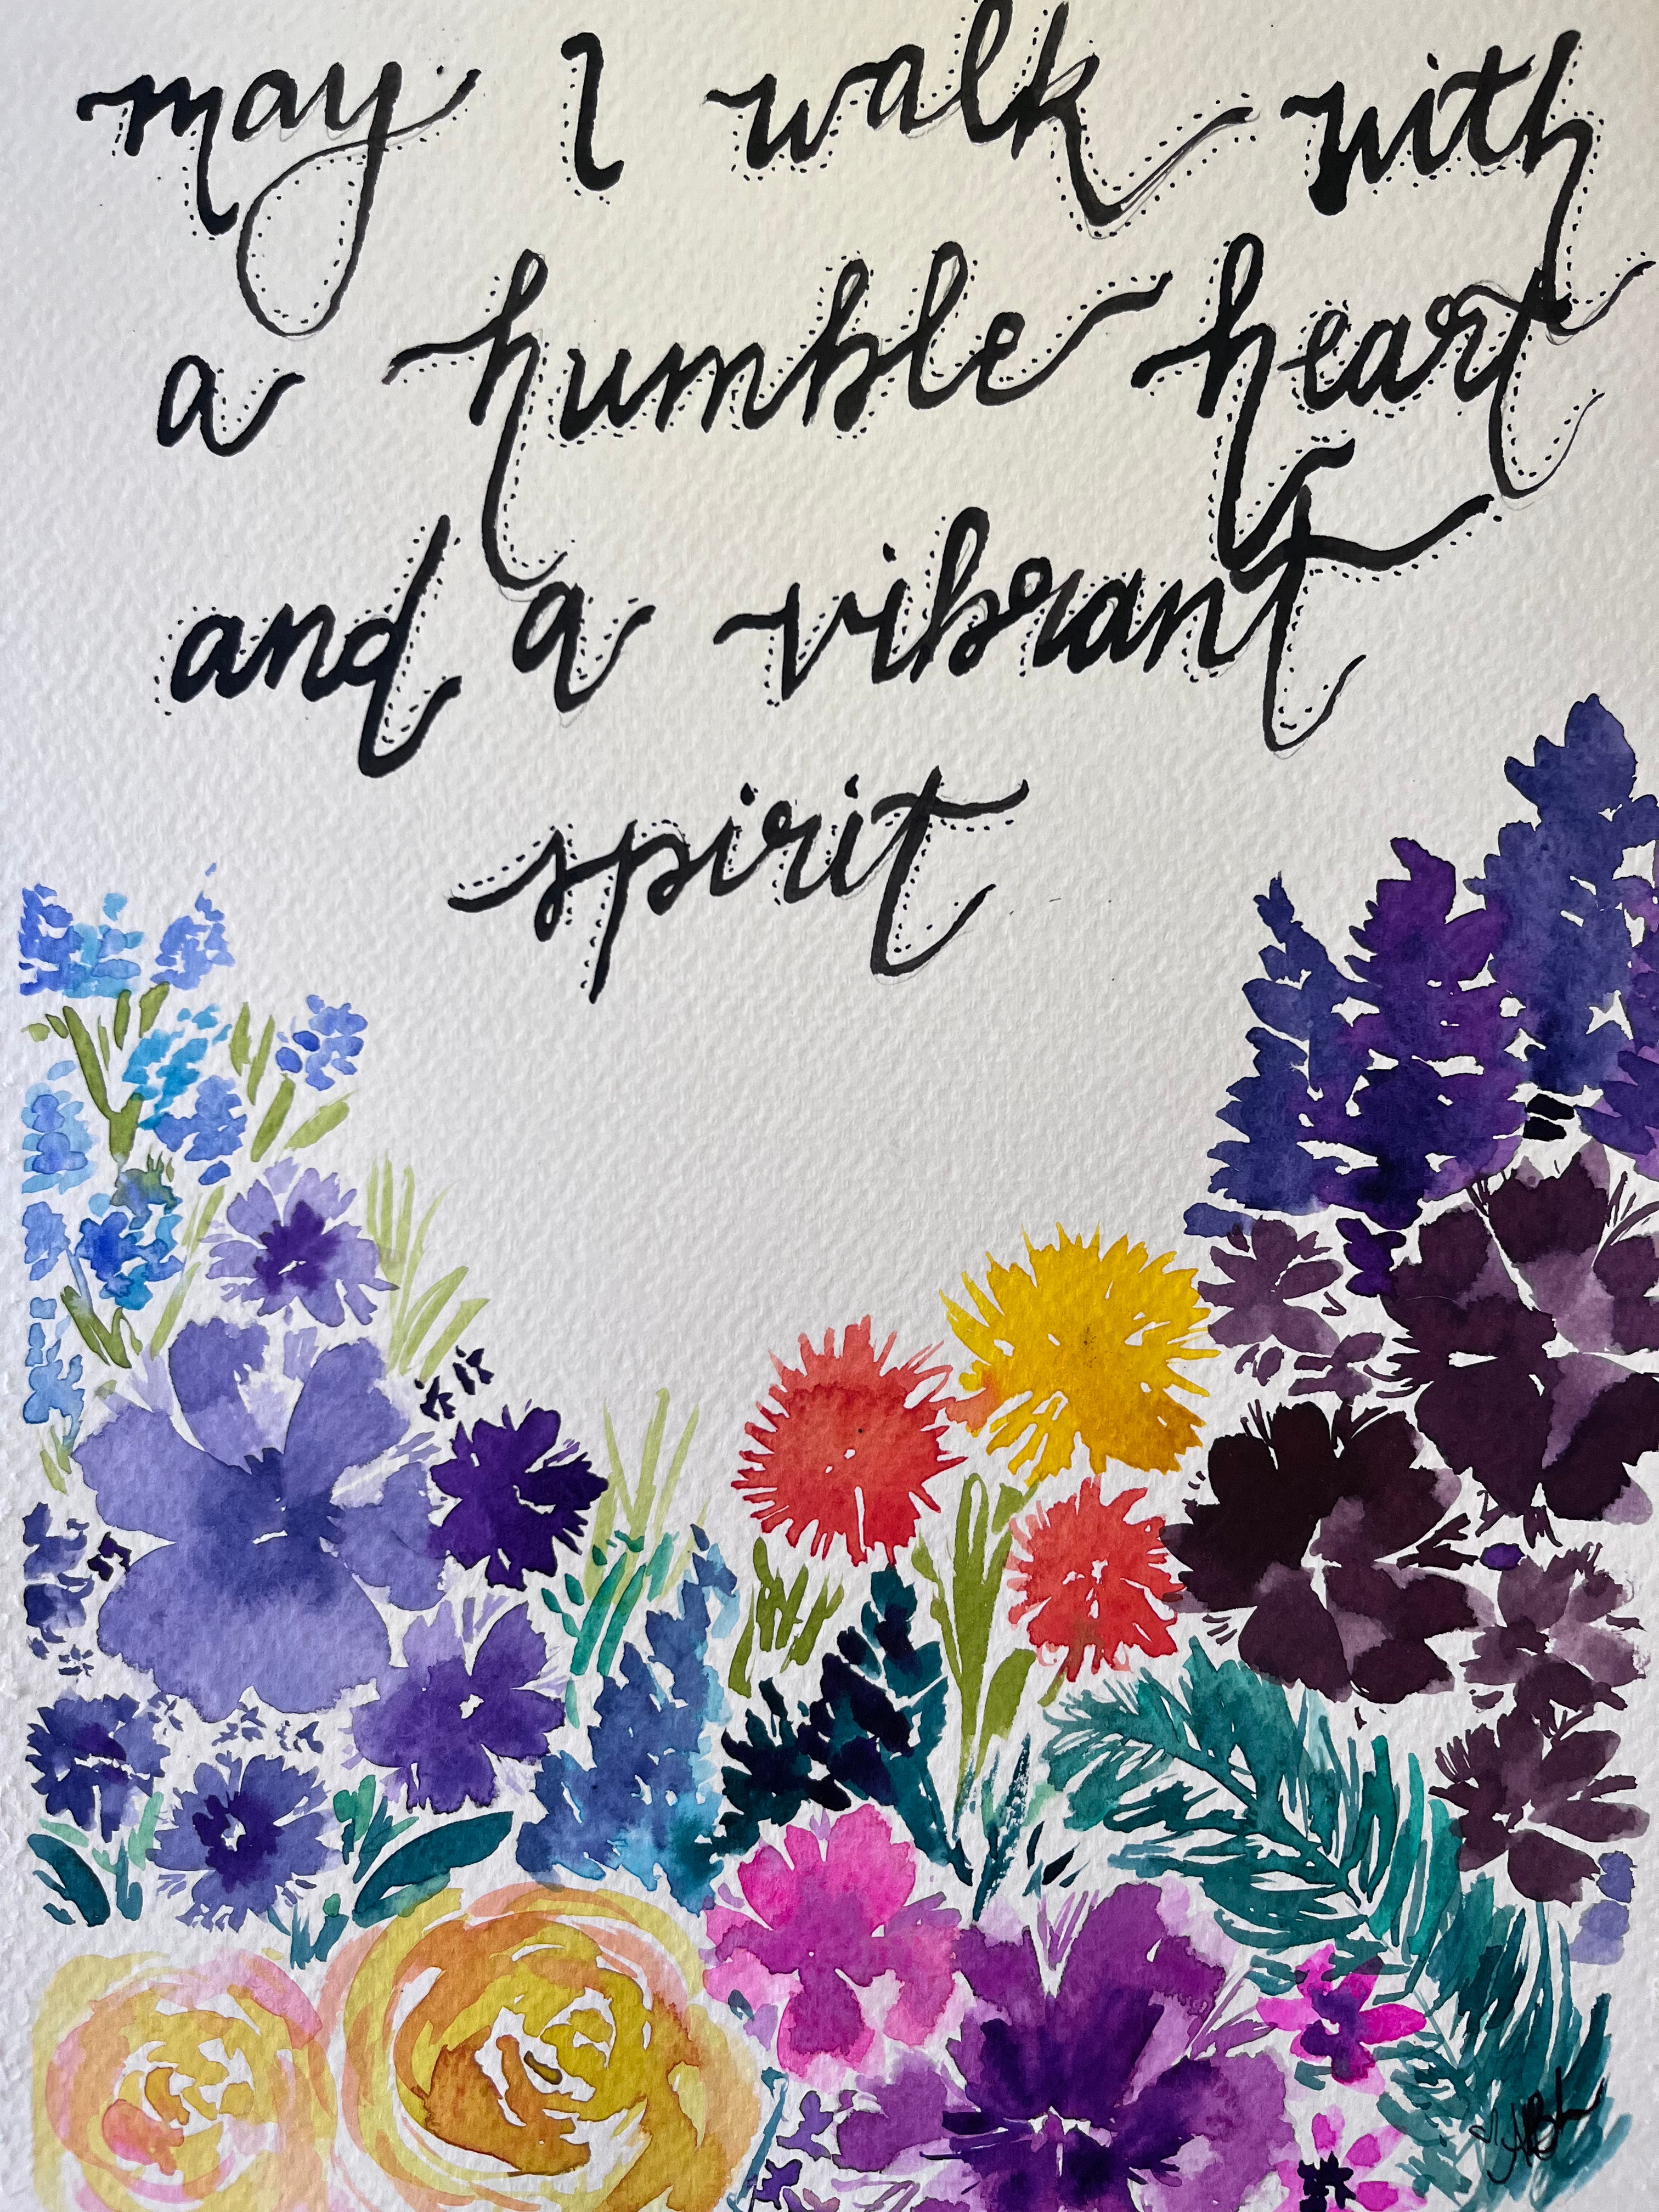 may I walk with
a humble heart
and a vibrant
spirit